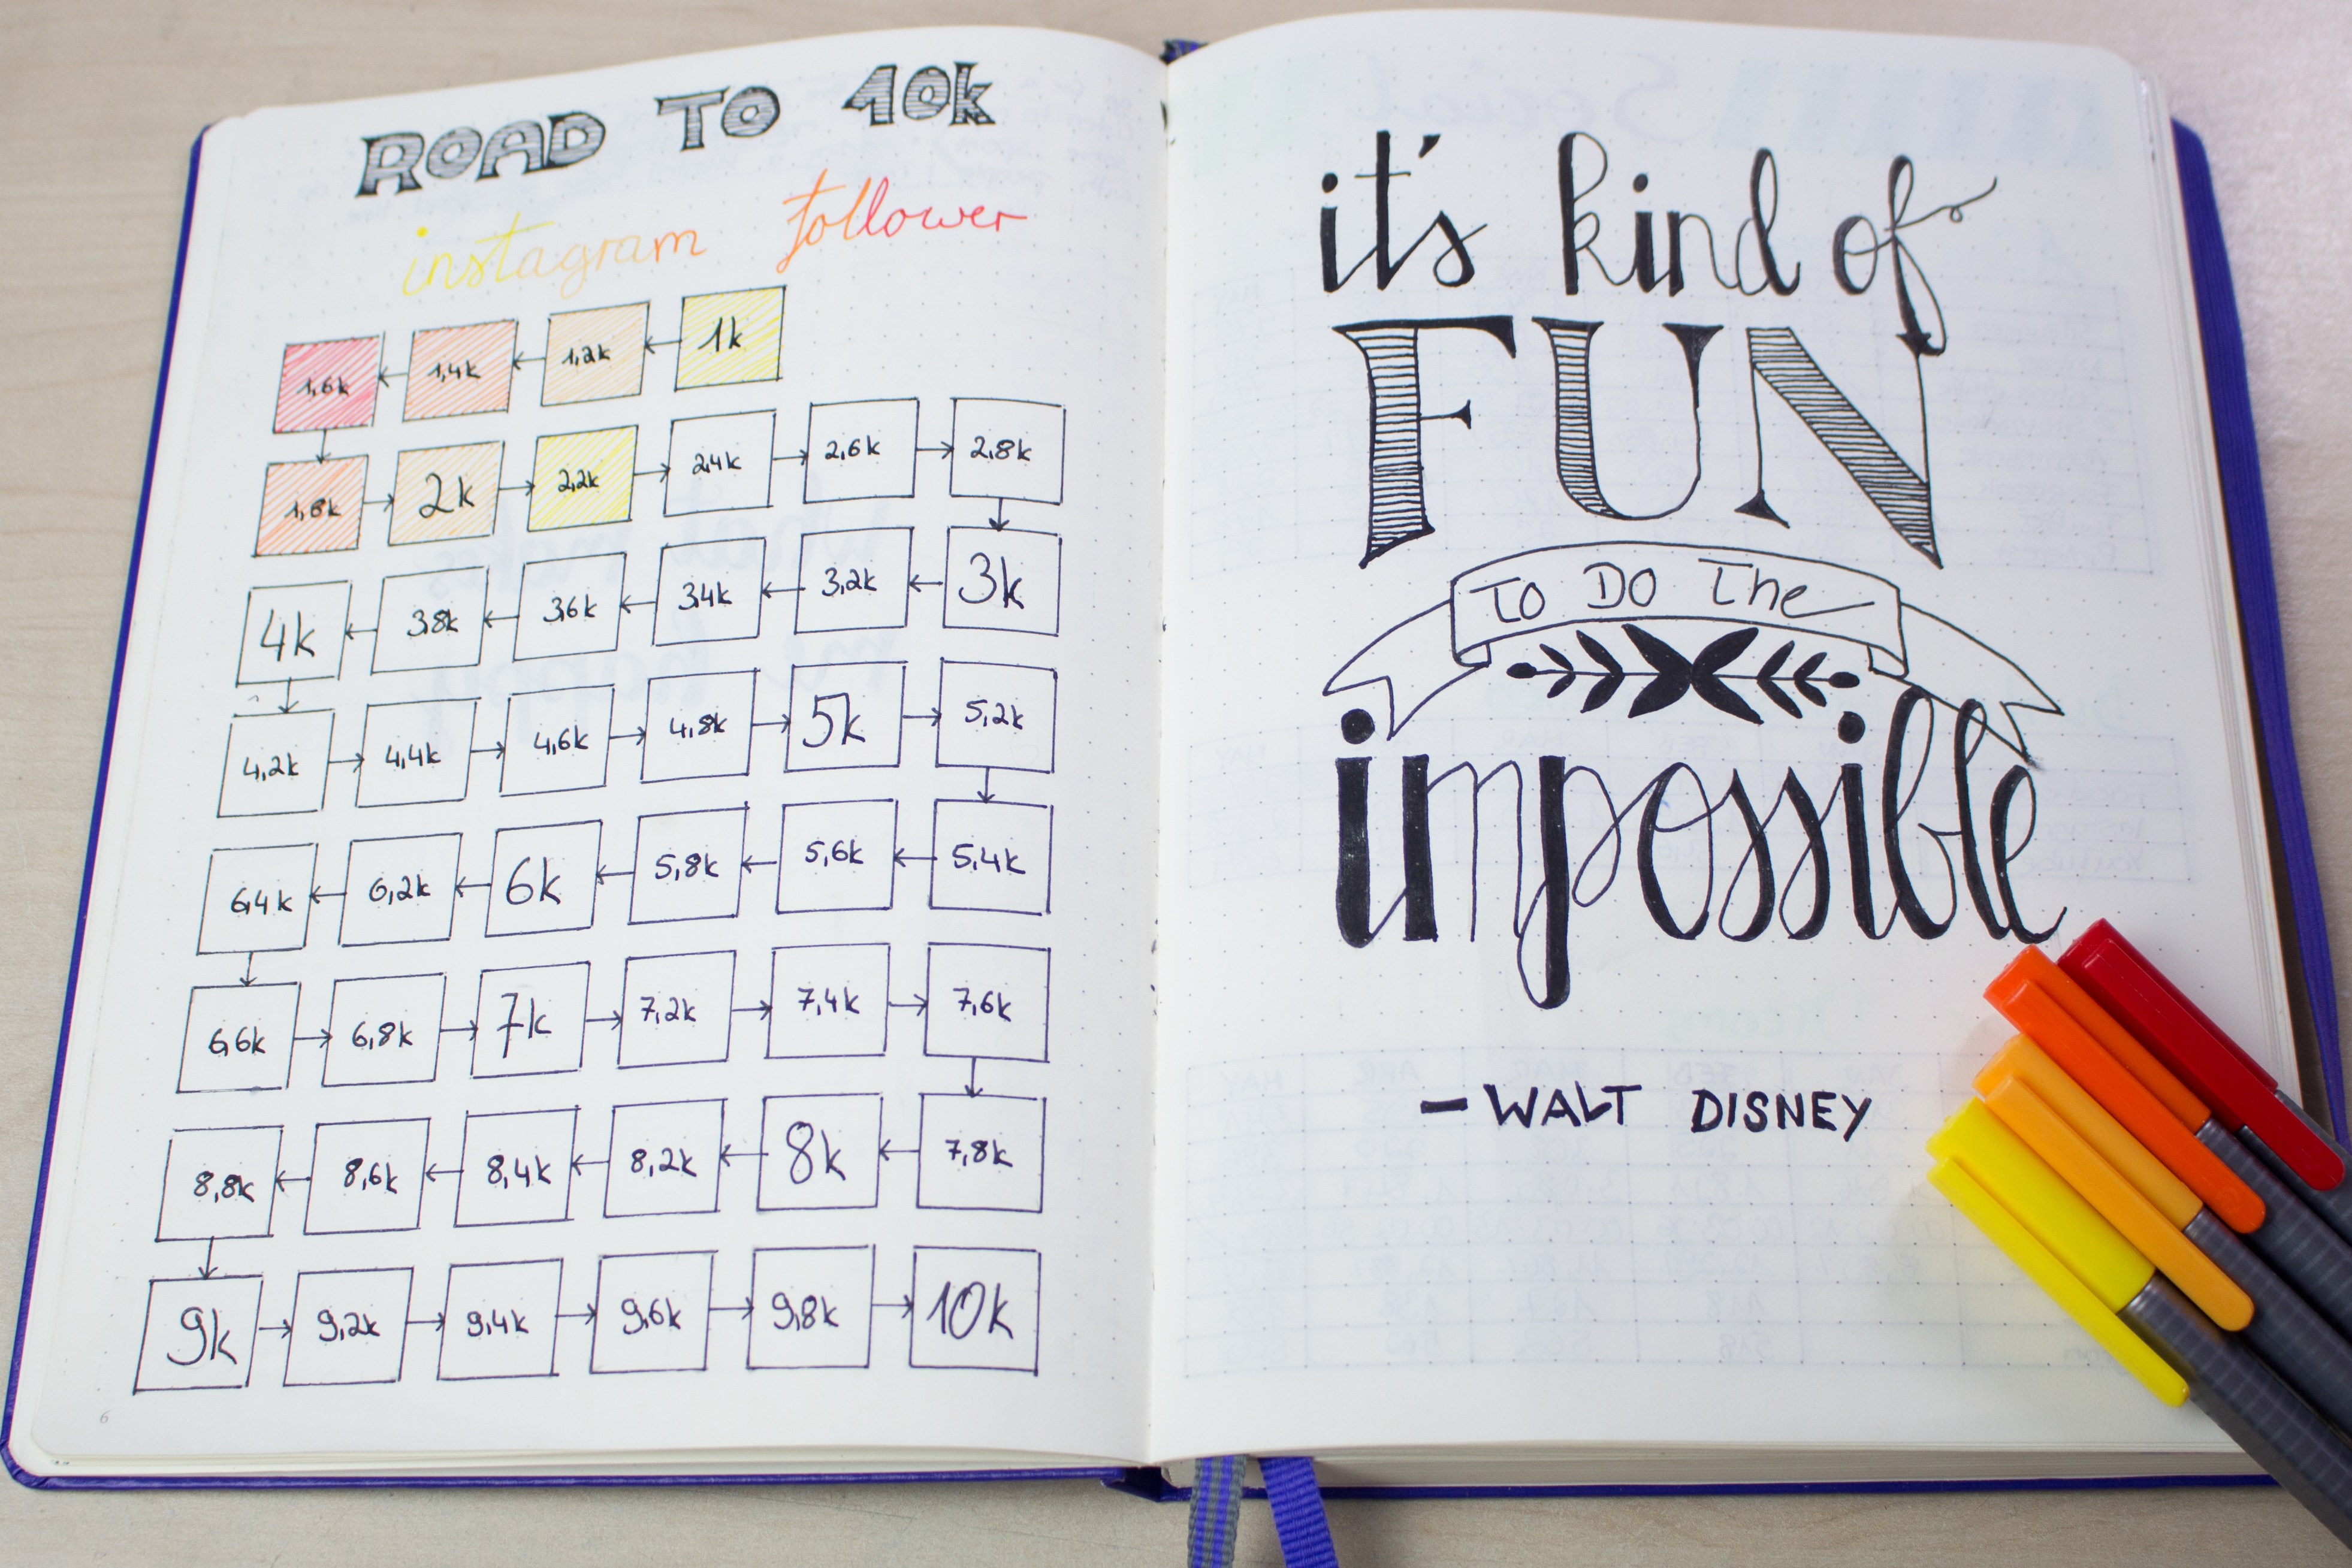 ROAD TO 10k
instagram follower
1,6k 1,4k 1,2k 1k
1,8k 2k 2,2k 2,4k 2,6k 2,8k
4k 3,8k 3,6k 3,4k 3,2k 3k
4,2k 4,4k 4,6k 4,8k 5k 5,2k
6,4k 6,2k 6k 5,8k 5,6k 5,4k
6,6k 6,8k 7k 7,2k 7,4k 7,6k
8,8k 8,6k 8,4k 8,2k 8k 7,8k
9k 9,2k 9,4k 9,6k 9,8k 10k
6
it's kind of
FUN
TO DO The
impossible
- WALT DISNEY